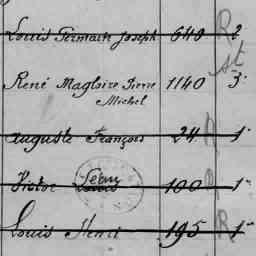 Louis Germain Joseph 640 2
st
René Magloire Pierre 1140 3
Michel
Auguste François 24 R 1
Léon
Victor Louis 100 R 1
Louis Henri 195 R 1